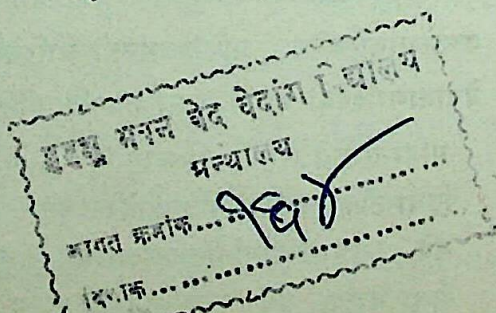 मुमुक्षु भवन वेद वेदांग विद्यालय
ग्रन्थालय
आगत क्रमांक......
दिनांक......